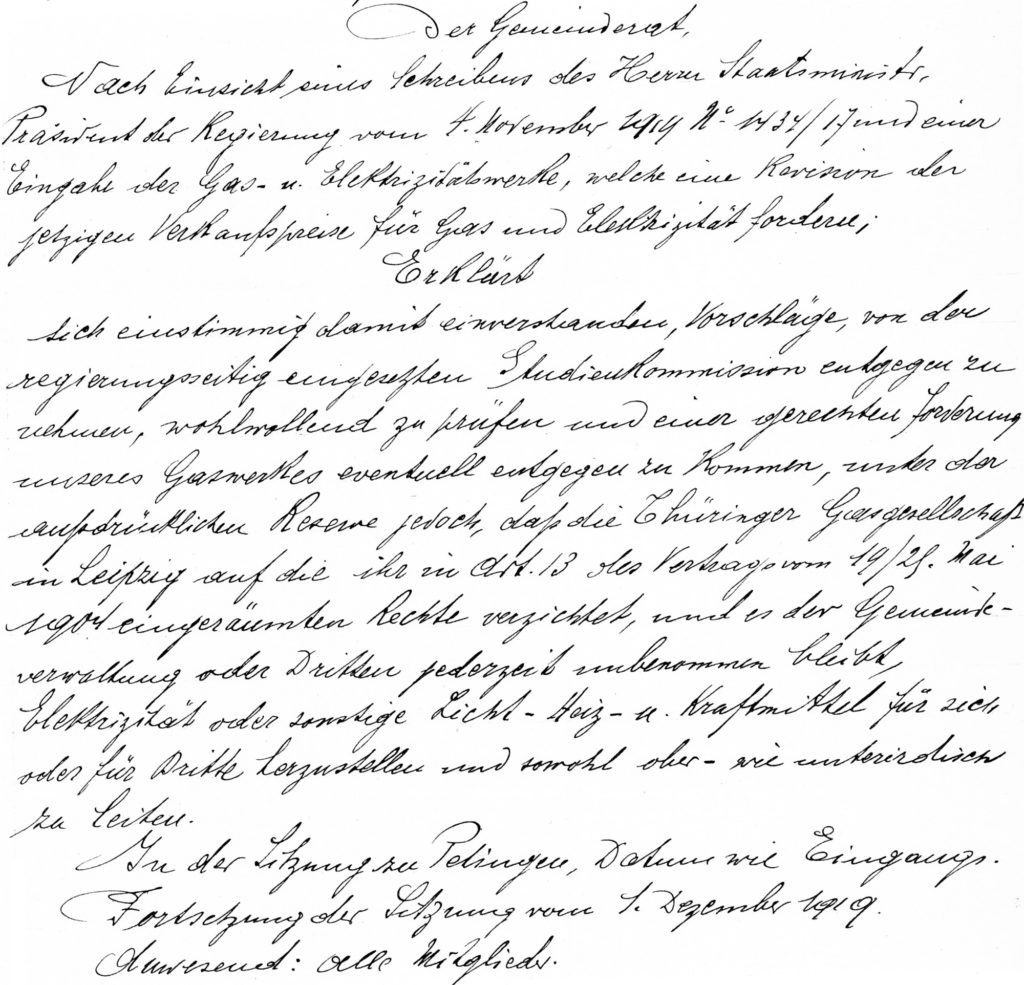 Der Gemeinderat,
Nach Einsicht eines Schreibens des Herrn Staatsminister,
Präsident der Regierung vom 4. November 1919 No 1434/17 und einer
Eingabe der Gas- u. Elektrizitätswerke, welche eine Revision der
jetzigen Verkaufspreise für Gas und Elektrizität fordern;
Erklärt
sich einstimmig damit einverstanden, Vorschläge, von der
regierungsseitig eingesetzten Studienkommission entgegen zu
nehmen, wohlwollend zu prüfen und einer gerechten Forderung
unseres Gaswerkes eventuell entgegen zu kommen, unter der
ausdrücklichen Reserve jedoch, daß die Thüringer Gasgesellschaft
in Leipzig auf die ihr in Art. 13 des Vertrags vom 19/25. Mai
1904 eingeräumten Rechte verzichtet, und es der Gemeinde-
verwaltung oder Dritten jederzeit unbenommen bleibt,
Elektrizität oder sonstige Licht- Heiz- u. Kraftmittel für sich
oder für Dritte herzustellen und sowohl ober- wie unterirdisch
zu leiten.
In der Sitzung zu Petingen, Datum wie Eingangs.
Fortsetzung der Sitzung vom 1. Dezember 1919.
Anwesend: alle Mitglieder.